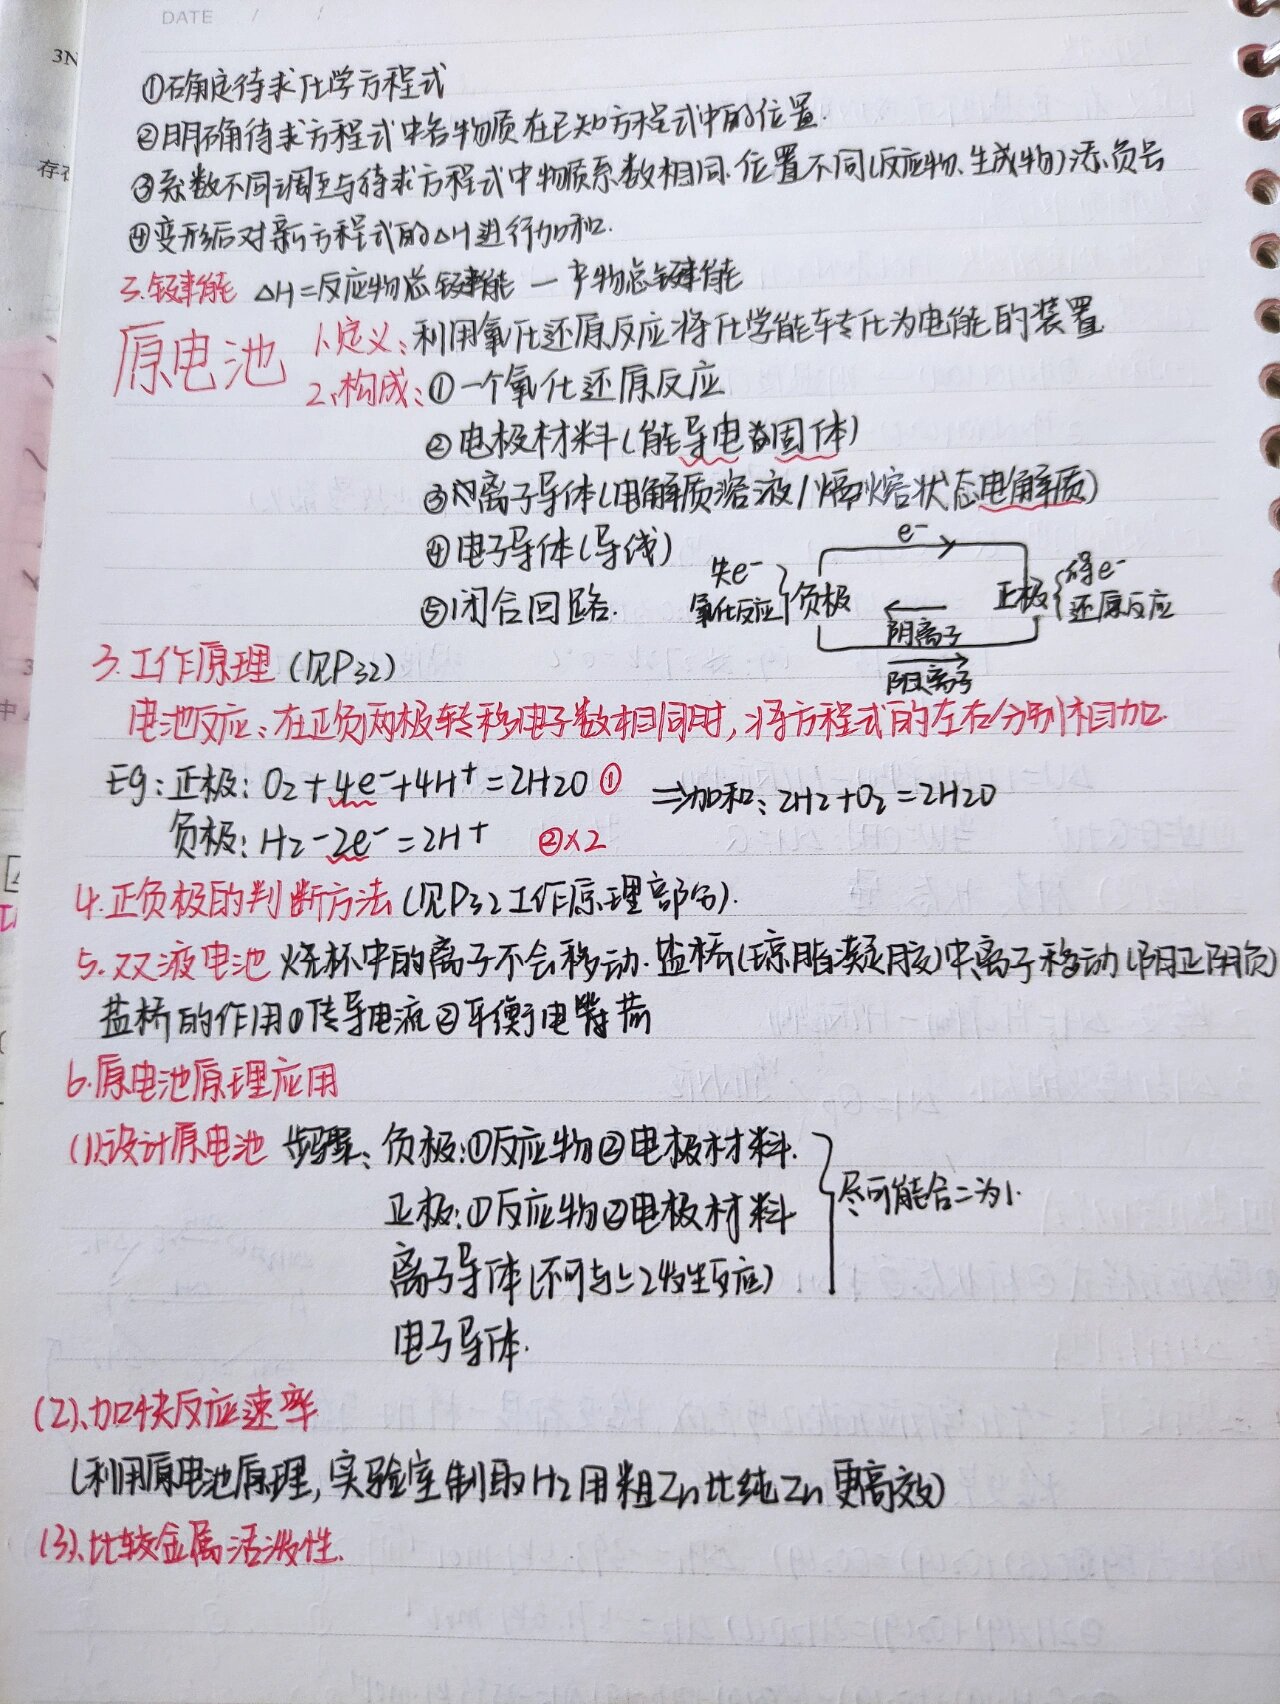 DATE / /
3N
①确定待求化学方程式
②明确待求方程式中各物质在已知方程式中的位置.
存在
③系数不同调至与待求方程式中物质系数相同.位置不同(反应物、生成物)添负号
④变形后对新方程式的△H进行加和.
3.键能 △H=反应物总键能 — 产物总键能
原电池 1.定义:利用氧化还原反应将化学能转化为电能的装置
2.构成:①一个氧化还原反应
②电极材料(能导电的固体)
③离子导体(电解质溶液/熔融状态电解质)
④电子导体(导线)
⑤闭合回路.
e-
失e- 氧化反应 负极
正极 得e- 还原反应
阴离子
阳离子
3.工作原理(见P32)
电池反应:在正负两极转移电子数相同时,将方程式的左右分别相加.
Eg:正极:O2+4e-+4H+=2H2O ① ⇒加和:2H2+O2=2H2O
负极:H2-2e-=2H+ ②×2
4.正负极的判断方法(见P32工作原理部分).
5.双液电池 烧杯中的离子不会移动.盐桥(琼脂凝胶)中离子移动(阳正阴负)
盐桥的作用①传导电流②平衡电荷
6.原电池原理应用
(1)设计原电池 步骤:负极:①反应物②电极材料.
正极:①反应物②电极材料
尽可能合二为1.
离子导体(不可与1、2发生反应)
电子导体.
(2)、加快反应速率
(利用原电池原理,实验室制取H2用粗Zn比纯Zn更高效)
(3)、比较金属活泼性.